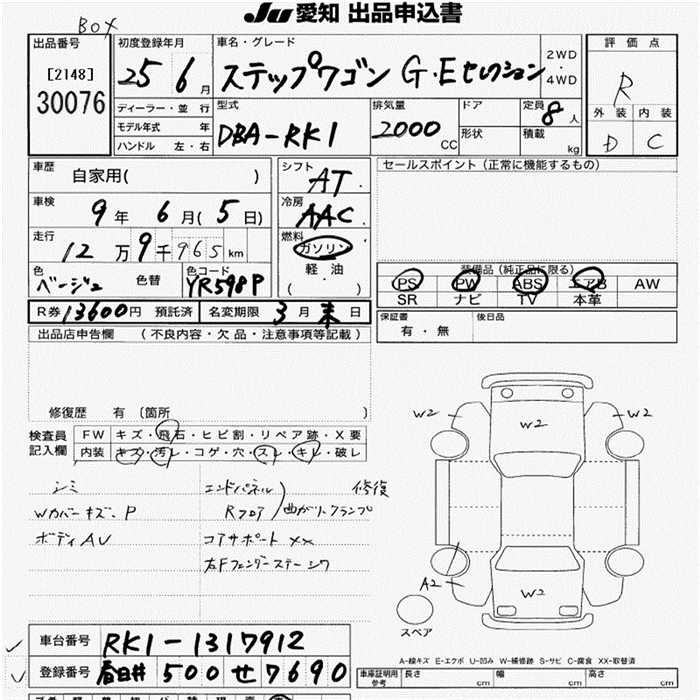 Ju 愛知 出品申込書
BOX
出品番号
[2148]
30076
初度登録年月
25 6月
車名・グレード
ステップワゴン G・Eセレクション
2WD
・
4WD
評価点
R
外装 内装
D C
ディーラー・並行
モデル年式 年
ハンドル 左・右
型式
DBA-RK1
排気量
2000 CC
ドア
形状
定員
8人
積載
kg
車歴
自家用( )
シフト
AT
セールスポイント(正常に機能するもの)
車検
9年 6月(5日)
冷房
AAC
走行
12万9千965km
燃料
ガソリン
軽油
( )
色
ベージュ
色替
色コード
YR598P
装備品(純正品に限る)
PS PW ABS エアB AW
SR ナビ TV 本革
R券 13600円 預託済
名変期限 3月末日
保証書
有・無
後日品
出品店申告欄 (不良内容・欠品・注意事項等記載)
修復歴 有(箇所 )
検査員
記入欄
FW キズ・飛石・ヒビ割・リペア跡・X要
内装 キズ・汚レ・コゲ・穴・スレ・キレ・破レ
シミ
Wカバーキズ、P
ボディAU
エンドパネル
Rフロア
曲がり、クランプ
修復
コアサポート XX
右Fフェンダーステー シワ
W2
W2
W2
A2
W2
スペア
A-線キズ E-エクボ U-凹み W-補修跡 S-サビ C-腐食 XX-取替済
車台番号 RK1-1317912
登録番号 春日井 500 せ 7690
車庫証明用
参考
長さ cm
幅 cm
高さ cm